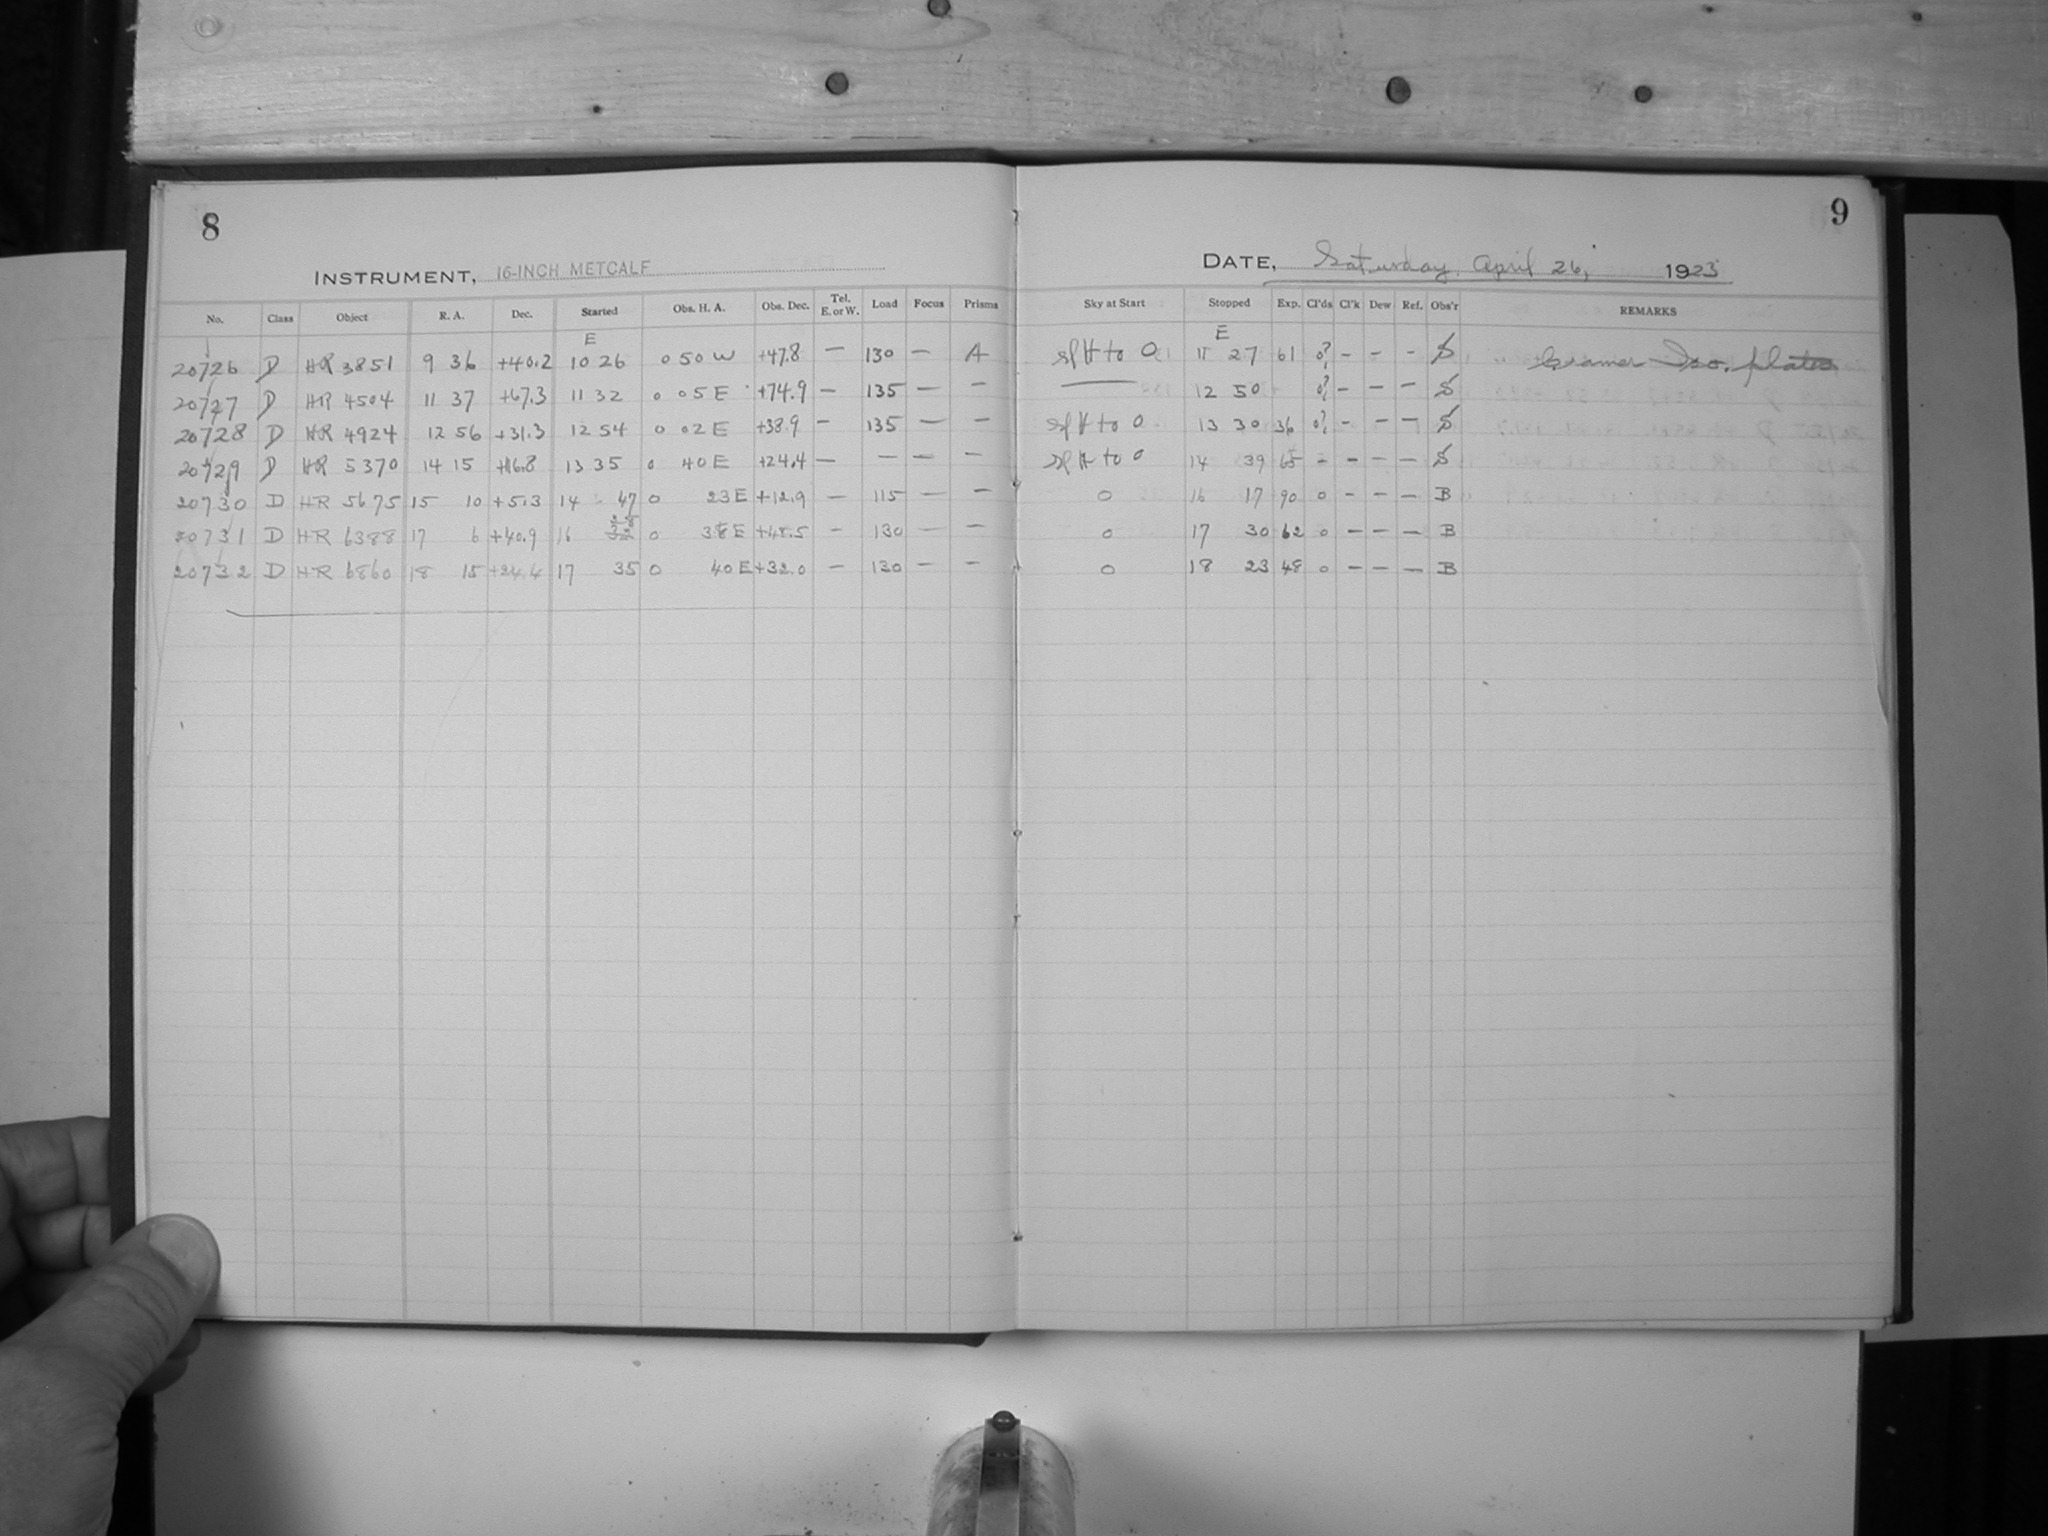 8
INSTRUMENT, 16-INCH METCALF
No. Class Object R. A. Dec. Started Obs. H. A. Obs. Dec. Tel. E. or W. Load Focus Prisms
E
20726 D HR 3851 9 36 +40.2 10 26 0 50 W +47.8 — 130 — A
20727 D HR 4504 11 37 +67.3 11 32 0 05 E +74.9 — 135 — —
20728 D HR 4924 12 56 +31.3 12 54 0 02 E +38.9 — 135 — —
20729 D HR 5370 14 15 +16.8 13 35 0 40 E +24.4 — — — —
20730 D HR 5675 15 10 +5.3 14 47 0 23 E +12.9 — 115 — —
20731 D HR 6388 17 6 +40.9 16 0 38 E +48.5 — 130 — —
20732 D HR 6860 18 15 +24.4 17 35 0 40 E +32.0 — 130 — —
9
DATE, Saturday, April 26, 1923
Sky at Start Stopped Exp. Cl'ds Cl'k Dew Ref. Obs'r REMARKS
E
to 0 11 27 61 0? — — — S Cramer Iso. plates
— 12 50 0? — — — S
to 0 13 30 36 0? — — — S
to 0 14 39 65 — — — — S
0 16 17 90 0 — — — B
0 17 30 62 0 — — — B
0 18 23 48 0 — — — B